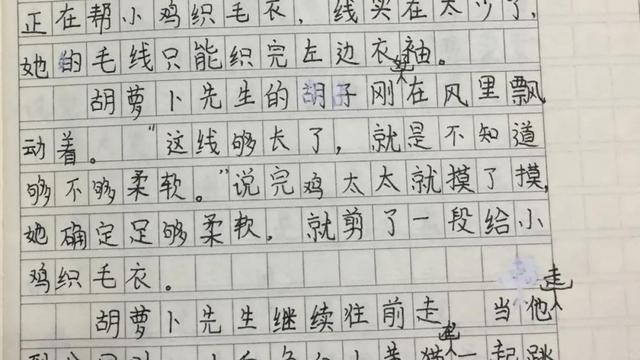 正在帮小鸡织毛衣，线实在太少了，
她的毛线只能织完左边衣袖。
胡萝卜先生的胡子刚在风里飘
动着。“这线够长了，就是不知道
够不够柔软。”说完鸡太太就摸了摸，
她确定足够柔软，就剪了一段给小
鸡织毛衣。
走
胡萝卜先生继续往前走 当他
一起跳